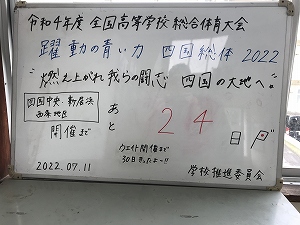 令和4年度 全国高等学校総合体育大会
躍動の青い力 四国総体 2022
"燃え上がれ我らの闘志 四国の大地へ"
四国中央・新居浜
西条地区
開催まで
あと 24日
ウエイト開催まで
30日きったよー!!
2022.07.11
学校推進委員会